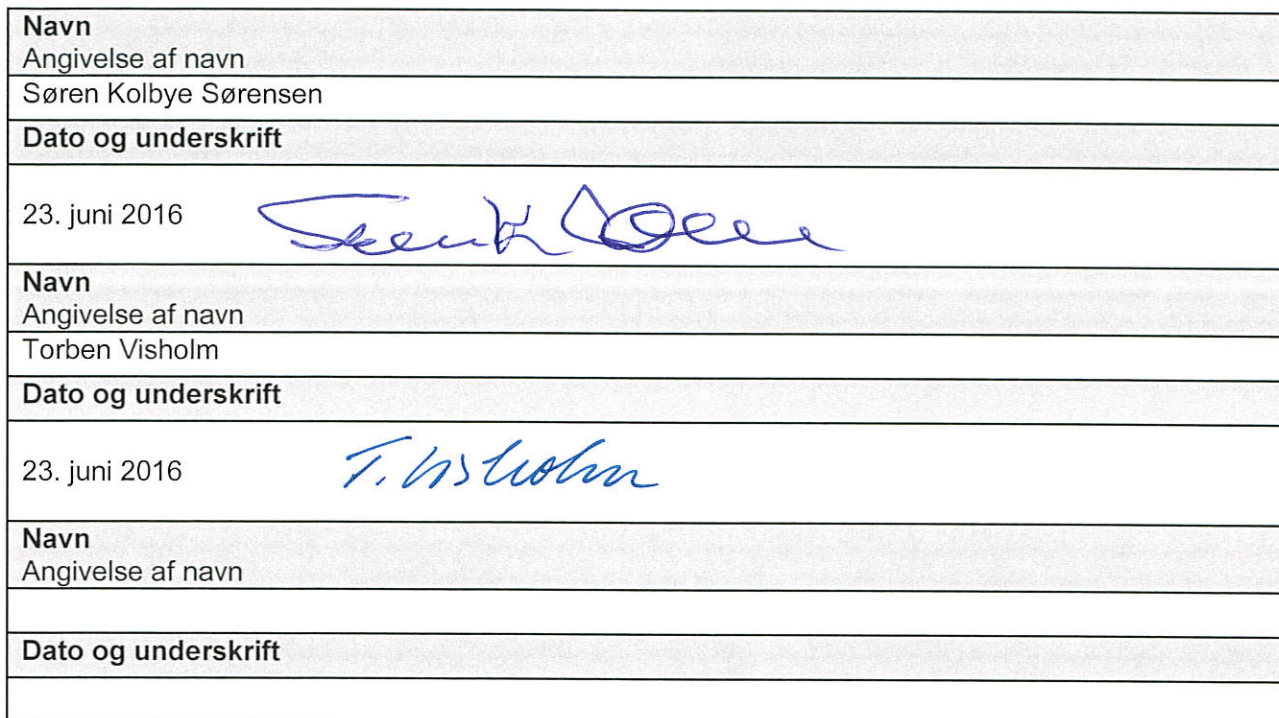 Navn
Angivelse af navn
Søren Kolbye Sørensen
Dato og underskrift
23. juni 2016
Navn
Angivelse af navn
Torben Visholm
Dato og underskrift
23. juni 2016 T. Visholm
Navn
Angivelse af navn
Dato og underskrift